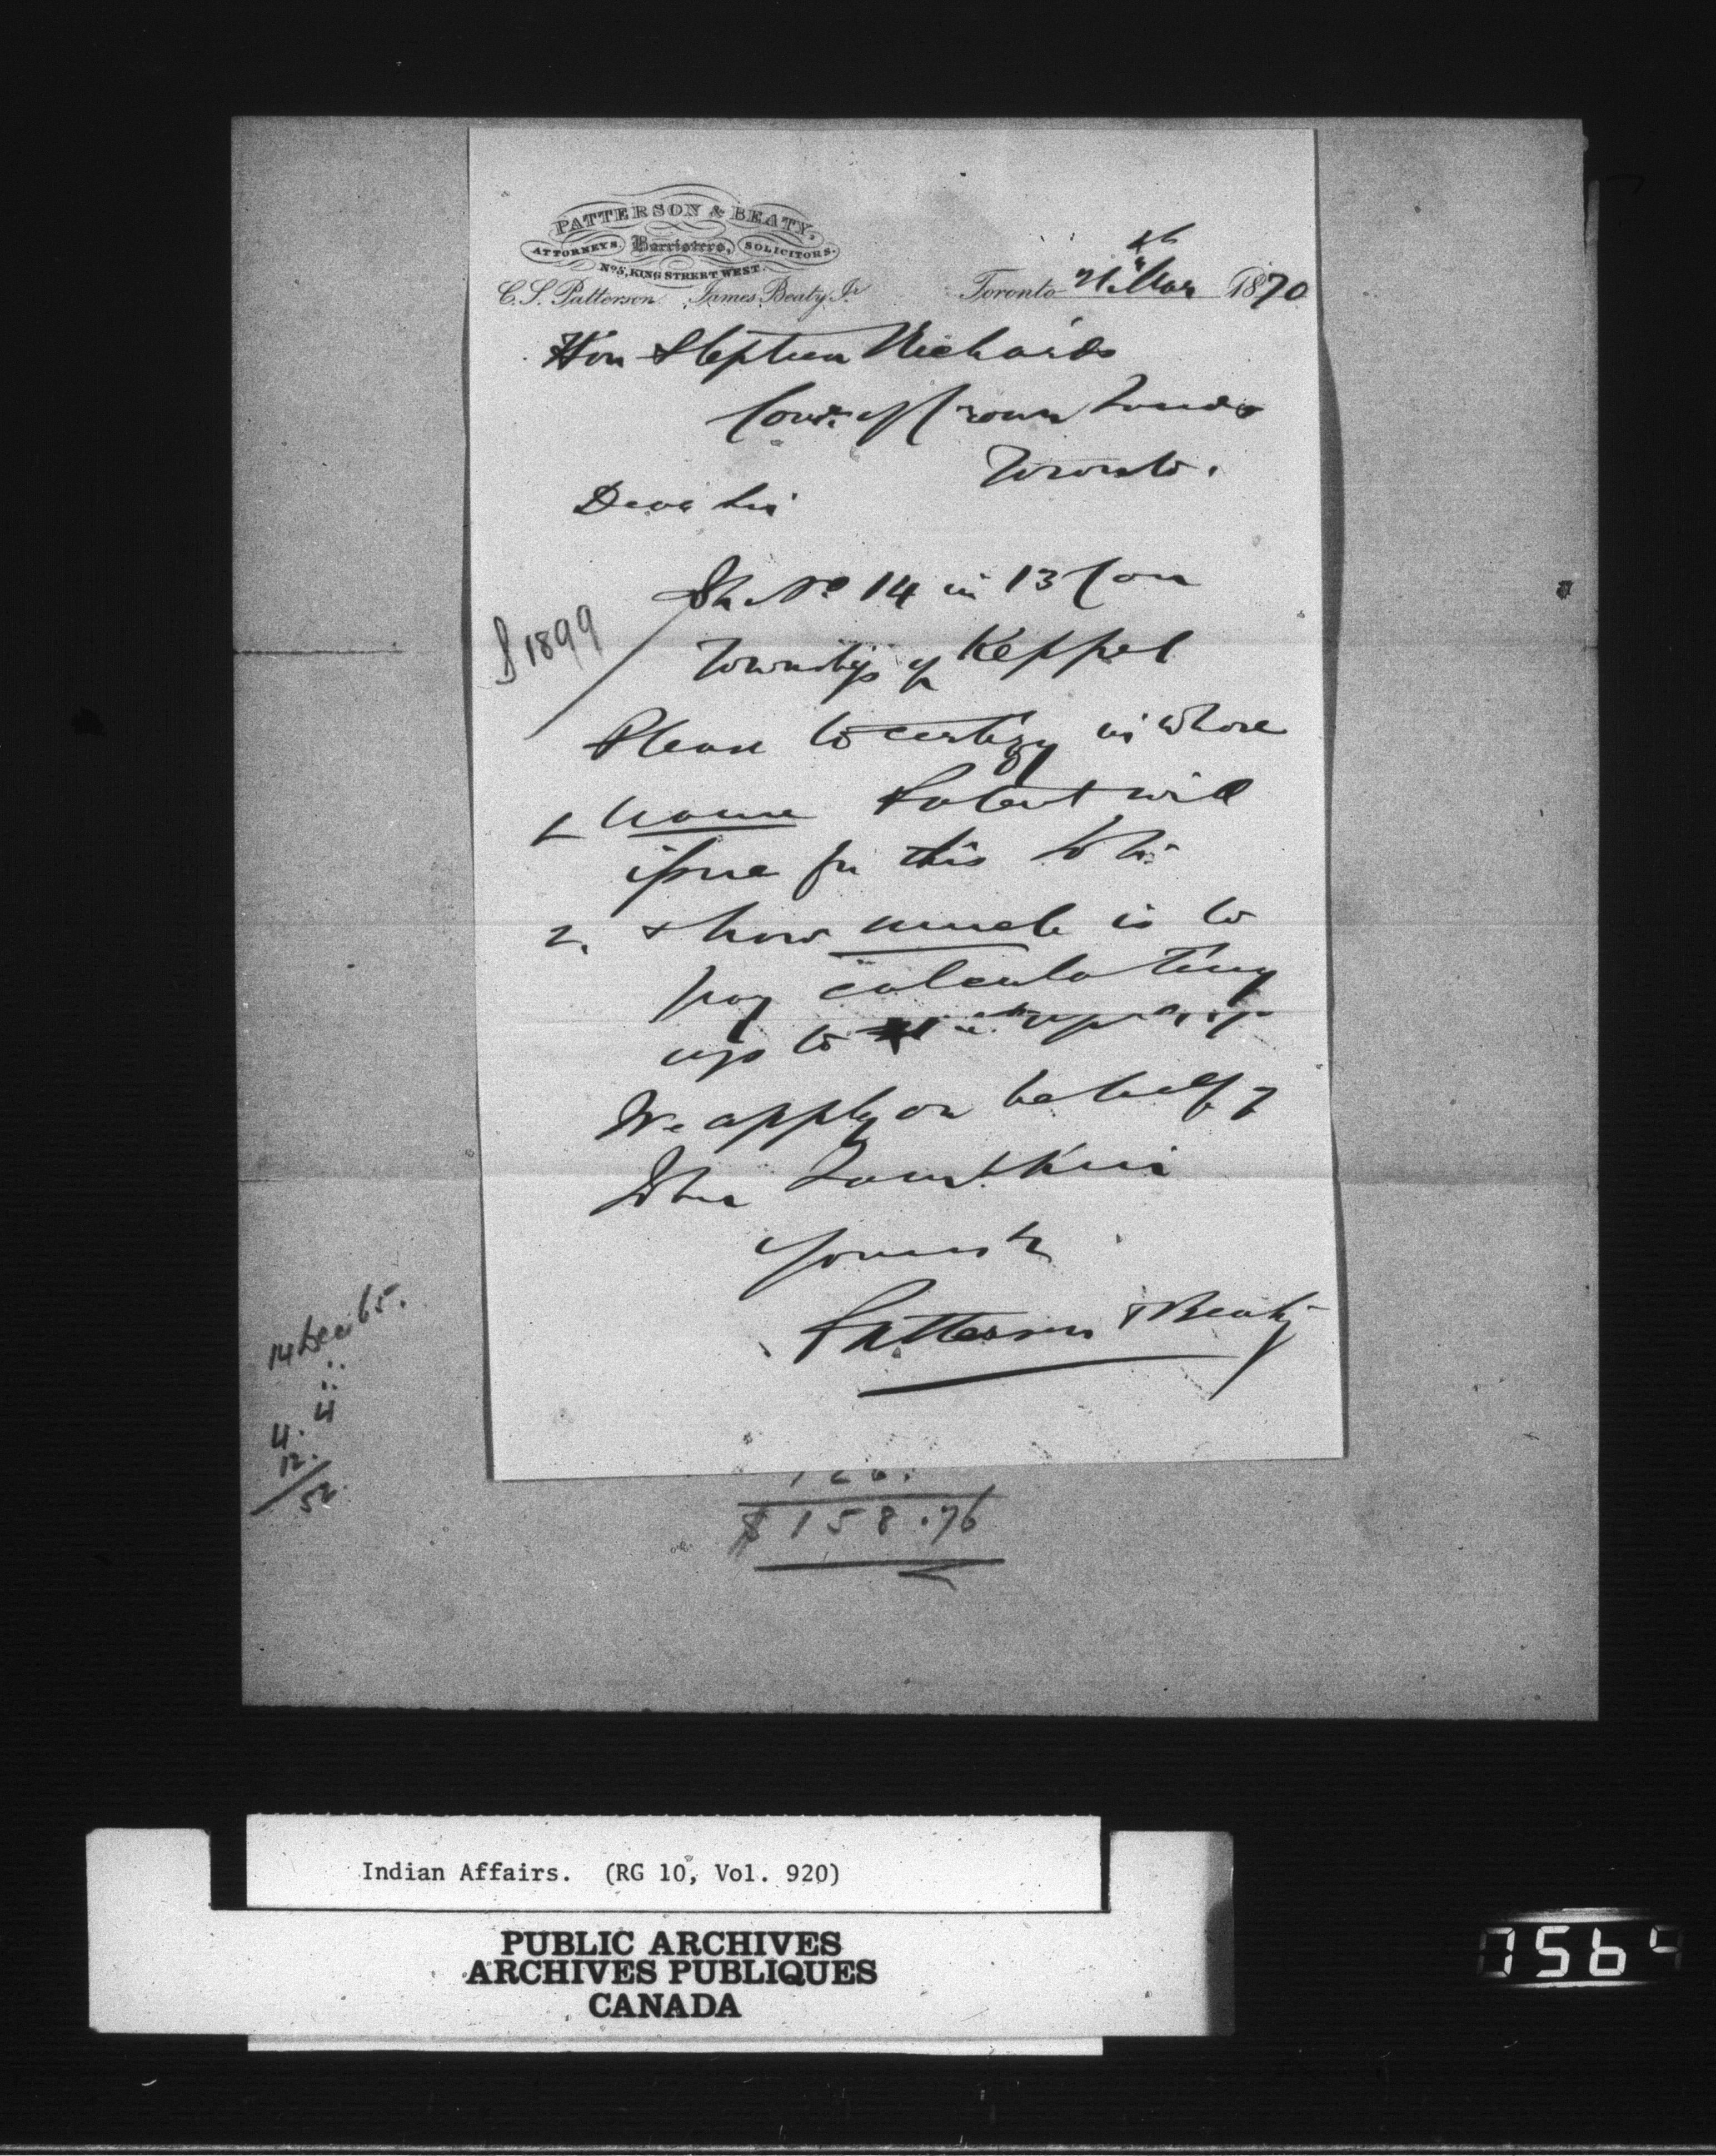 PATTERSON & BEATY,
ATTORNEYS, Barristers, SOLICITORS.
No 5, KING STREET WEST.
C. S. Patterson James Beaty Jr
Toronto Mar 1870
Hon Stephen Richards
Comr. of Crown Lands
Toronto.
Dear Sir
No 14 in 13 Con
Township of Keppel
$1899
Please to certify in whose
1 name Patent will
issue for this lot
2. & how much is to
pay calculating
up to
We apply on behalf of
John
Yours tr
Patterson & Beaty
14 Dec 65.
4. 4
12.
52
126.
$158.76
Indian Affairs. (RG 10, Vol. 920)
PUBLIC ARCHIVES
ARCHIVES PUBLIQUES
CANADA